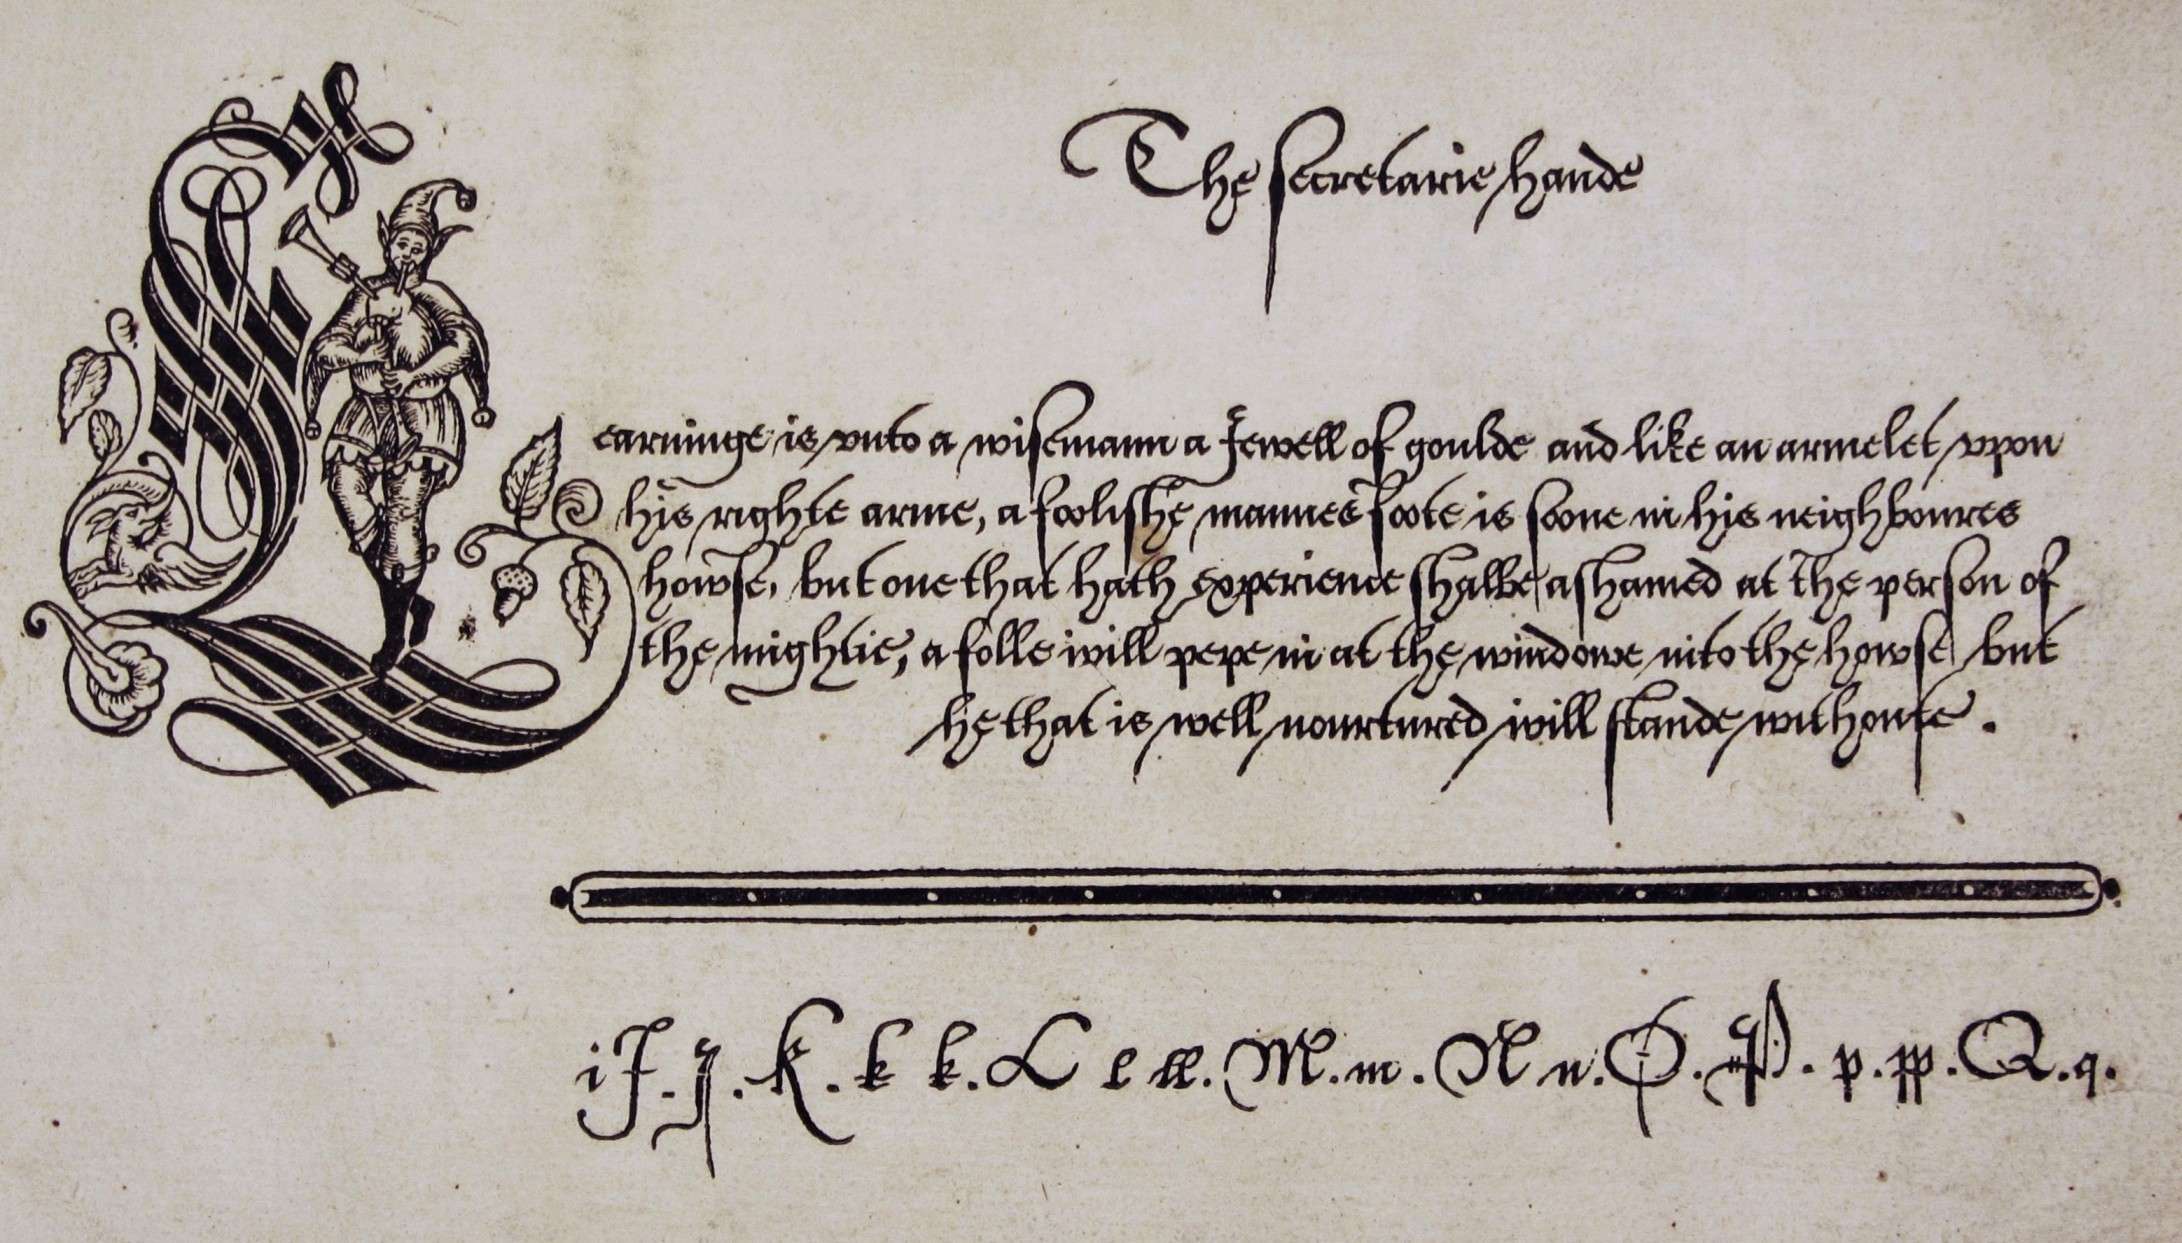 The secretarie hande
Learninge is vnto a wisemann a Jewell of goulde and like an armelet vpon
his righte arme, a foolishe mannes foote is soone in his neighboures
howse, but one that hath experience shalbe ashamed at the person of
the mightie, a folle will pepe in at the windowe into the howse but
he that is well nourtured will stande withoute.
i J. j. K. k k. L l ll. M. m. N n. O. P. p. pp. Q. q.